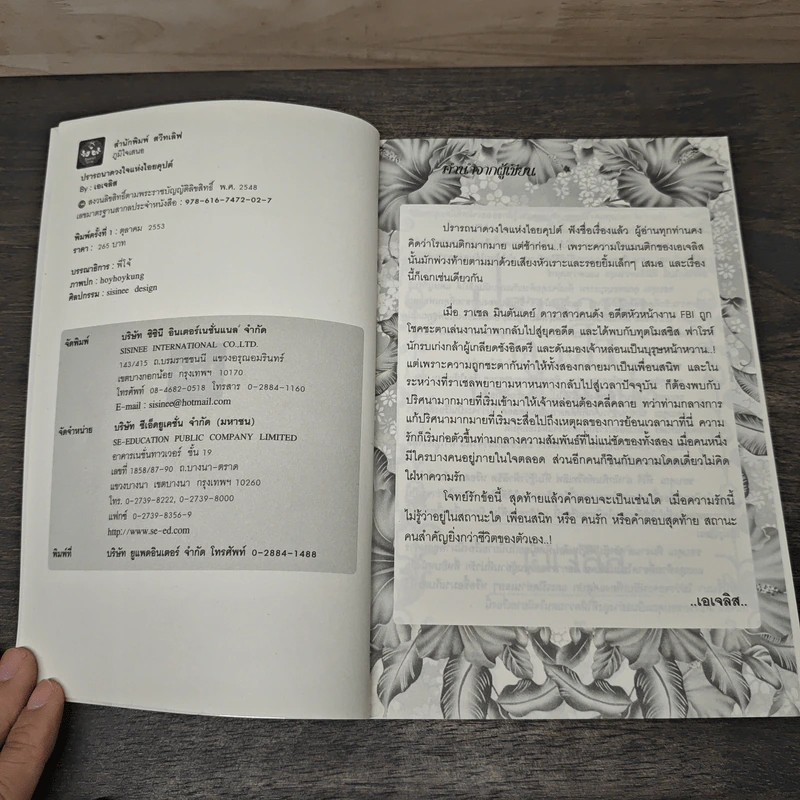 สำนักพิมพ์ สวีทเลิฟ
ภูมิใจเสนอ
ปรารถนาดวงใจแห่งไอยคุปต์
By : เอเจลิส
© สงวนลิขสิทธิ์ตามพระราชบัญญัติลิขสิทธิ์ พ.ศ. 2548
เลขมาตรฐานสากลประจำหนังสือ : 978-616-7472-02-7
พิมพ์ครั้งที่ 1 : ตุลาคม 2553
ราคา : 265 บาท
บรรณาธิการ : พี่โจ้
ภาพปก : hoyhoykung
ศิลปกรรม : sisinee design
จัดพิมพ์ บริษัท ซิซินี อินเตอร์เนชั่นแนล จำกัด
SISINEE INTERNATIONAL CO.,LTD.
143/415 ถ.บรมราชชนนี แขวงอรุณอมรินทร์
เขตบางกอกน้อย กรุงเทพฯ 10170
โทรศัพท์ 08-4682-0518 โทรสาร 0-2884-1160
E-mail : sisinee@hotmail.com
จัดจำหน่าย บริษัท ซีเอ็ดยูเคชั่น จำกัด (มหาชน)
SE-EDUCATION PUBLIC COMPANY LIMITED
อาคารเนชั่นทาวเวอร์ ชั้น 19
เลขที่ 1858/87-90 ถ.บางนา-ตราด
แขวงบางนา เขตบางนา กรุงเทพฯ 10260
โทร. 0-2739-8222, 0-2739-8000
แฟกซ์ 0-2739-8356-9
http://www.se-ed.com
พิมพ์ที่ บริษัท ยูแพดอินเตอร์ จำกัด โทรศัพท์ 0-2884-1488
คำนำจากผู้เขียน
ปรารถนาดวงใจแห่งไอยคุปต์ ฟังชื่อเรื่องแล้ว ผู้อ่านทุกท่านคง
คิดว่าโรแมนติกมากมาย แต่ช้าก่อน..! เพราะความโรแมนติกของเอเจลิส
นั้นมักพ่วงท้ายตามมาด้วยเสียงหัวเราะและรอยยิ้มเล็กๆ เสมอ และเรื่อง
นี้ก็เฉกเช่นเดียวกัน
เมื่อ ราเชล มินตันเดย์ ดาราสาวคนดัง อดีตหัวหน้างาน FBI ถูก
โชคชะตาเล่นงานนำพากลับไปสู่ยุคอดีต และได้พบกับทุตโมสซิส ฟาโรห์
นักรบเก่งกล้าผู้เกลียดชังอิสตรี และดันมองเจ้าหล่อนเป็นบุรุษหน้าหวาน..!
แต่เพราะความถูกชะตากันทำให้ทั้งสองกลายมาเป็นเพื่อนสนิท และใน
ระหว่างที่ราเชลพยายามหาหนทางกลับไปสู่เวลาปัจจุบัน ก็ต้องพบกับ
ปริศนามากมายที่เริ่มเข้ามาให้เจ้าหล่อนต้องคลี่คลาย ทว่าท่ามกลางการ
แก้ปริศนามากมายที่เริ่มจะสื่อไปถึงเหตุผลของการย้อนเวลามาที่นี่ ความ
รักก็เริ่มก่อตัวขึ้นท่ามกลางความสัมพันธ์ที่ไม่แน่ชัดของทั้งสอง เมื่อคนหนึ่ง
มีใครบางคนอยู่ภายในใจตลอด ส่วนอีกคนก็ชินกับความโดดเดี่ยวไม่คิด
ใฝ่หาความรัก
โจทย์รักข้อนี้ สุดท้ายแล้วคำตอบจะเป็นเช่นใด เมื่อความรักนี้
ไม่รู้ว่าอยู่ในสถานะใด เพื่อนสนิท หรือ คนรัก หรือคำตอบสุดท้าย สถานะ
คนสำคัญยิ่งกว่าชีวิตของตัวเอง..!
..เอเจลิส..